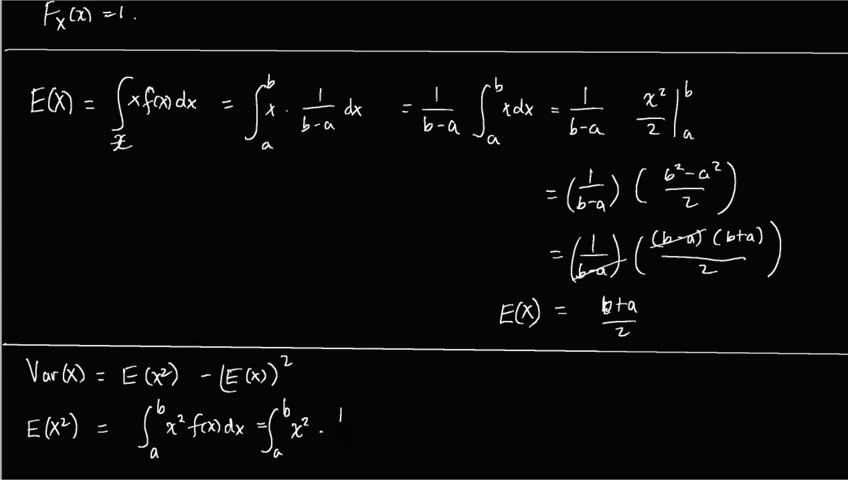 F_X(x) = 1.
E(X) = ∫_𝒳 x f(x) dx = ∫_a^b x · 1/(b-a) dx = 1/(b-a) ∫_a^b x dx = 1/(b-a) x²/2 |_a^b
= (1/(b-a)) ((b²-a²)/2)
= (1/(b-a)) ((b-a)(b+a)/2)
E(X) = (b+a)/2
Var(X) = E(X²) - (E(X))²
E(X²) = ∫_a^b x² f(x) dx = ∫_a^b x² · 1